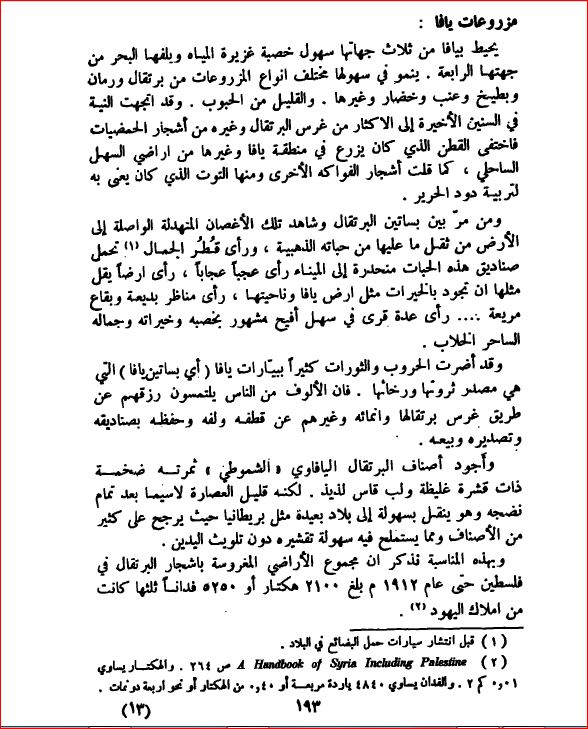 مزروعات يافا :
يحيط بيافا من ثلاث جهاتها سهول خصبة غزيرة المياه ويلفها البحر من
جهتها الرابعة . ينمو في سهولها مختلف انواع المزروعات من برتقال ورمان
وبطيخ وعنب وخضار وغيرها . والقليل من الحبوب . وقد اتجهت النية
في السنين الأخيرة إلى الاكثار من غرس البرتقال وغيره من أشجار الحمضيات
فاختفى القطن الذي كان يزرع في منطقة يافا وغيرها من اراضي السهل
الساحلي ، كما قلت أشجار الفواكه الأخرى ومنها التوت الذي كان يعنى به
لتربية دود الحرير .
ومن مرّ بين بساتين البرتقال وشاهد تلك الأغصان المتهدلة الواصلة إلى
الأرض من ثقل ما عليها من حباته الذهبية ، ورأى قُطُر الجمال (١) تحمل
صناديق هذه الحبات منحدرة إلى الميناء رأى عجباً عجاباً ، رأى ارضاً يقل
مثلها ان تجود بالخيرات مثل ارض يافا وناحيتها ، رأى مناظر بديعة وبقاع
مريعة .... رأى عدة قرى في سهل أفيح مشهور بخصبه وخيراته وجماله
الساحر الخلاب .
وقد أضرت الحروب والثورات كثيراً ببيّارات يافا ( أي بساتين يافا ) التي
هي مصدر ثروتها ورخائها . فان الألوف من الناس يلتمسون رزقهم عن
طريق غرس برتقالها وانمائه وغيرهم عن قطفه ولفه وحفظه بصناديقه
وتصديره وبيعه .
وأجود أصناف البرتقال اليافاوي « الشموطي » ثمرته ضخمة
ذات قشرة غليظة ولب قاس لذيذ . لكنه قليل العصارة لاسيما بعد تمام
نضجه وهو ينقل بسهولة إلى بلاد بعيدة مثل بريطانيا حيث يرجح على كثير
من الأصناف ومما يستملح فيه سهولة تقشيره دون تلويث اليدين .
وبهذه المناسبة نذكر ان مجموع الأراضي المغروسة باشجار البرتقال في
فلسطين حتى عام ١٩١٢ م بلغ ٢١٠٠ هكتار أو ٥٢٥٠ فداناً ثلثها كانت
من املاك اليهود (٢) .
( ١ ) قبل انتشار سيارات حمل البضائع في البلاد .
( ٢ ) A Handbook of Syria Including Palestine ص ٢٦٤ . والهكتار يساوي
٠,٠١ كم ٢ . والفدان يساوي ٤٨٤٠ ياردة مربعة أو ٠,٤٠ من الهكتار أو نحو اربعة دونمات .
١٩٣
(١٣)